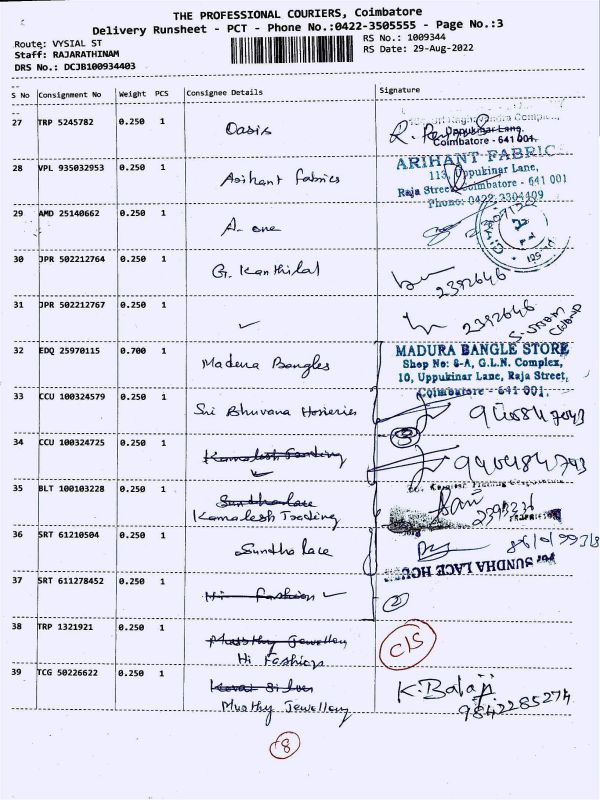 THE PROFESSIONAL COURIERS, Coimbatore
Delivery Runsheet - PCT - Phone No.:0422-3505555 - Page No.:3
Route: VYSIAL ST
RS No.: 1009344
Staff: RAJARATHINAM
RS Date: 29-Aug-2022
DRS No.: DCJB100934403
S No Consignment No Weight PCS Consignee Details Signature
27 TRP 5245782 0.250 1 Oasis
Uppukinar Lane,
Coimbatore - 641 001.
28 VPL 935032953 0.250 1 Arihant fabrics
ARIHANT FABRIC
113, Uppukinar Lane,
Raja Street, Coimbatore - 641 001
Phone: 0422-2304409
29 AMD 25140662 0.250 1 A. one
30 JPR 502212764 0.250 1 G. Kanthilal 2392646
31 JPR 502212767 0.250 1 ✓ 2392646
32 EDQ 25970115 0.700 1 Madura Bangles
MADURA BANGLE STORE
Shop No: 8-A, G.L.N. Complex,
10, Uppukinar Lane, Raja Street,
Coimbatore - 641 001.
33 CCU 100324579 0.250 1 Sri Bhuvana Hosieries
34 CCU 100324725 0.250 1 Kamalesh Trading ✓
35 BLT 100103228 0.250 1 Sundha lace
Kamalesh Trading
36 SRT 61210504 0.250 1 Sundha lace
For SUNDHA LACE HOUSE
37 SRT 611278452 0.250 1 Hi - Fashion ✓
2
38 TRP 1321921 0.250 1 Murthy Jewellery
Hi Fashion
C/S
39 TCG 50226622 0.250 1 Kovai Silver
Murthy Jewellery
K. Balaji
9842285274
8